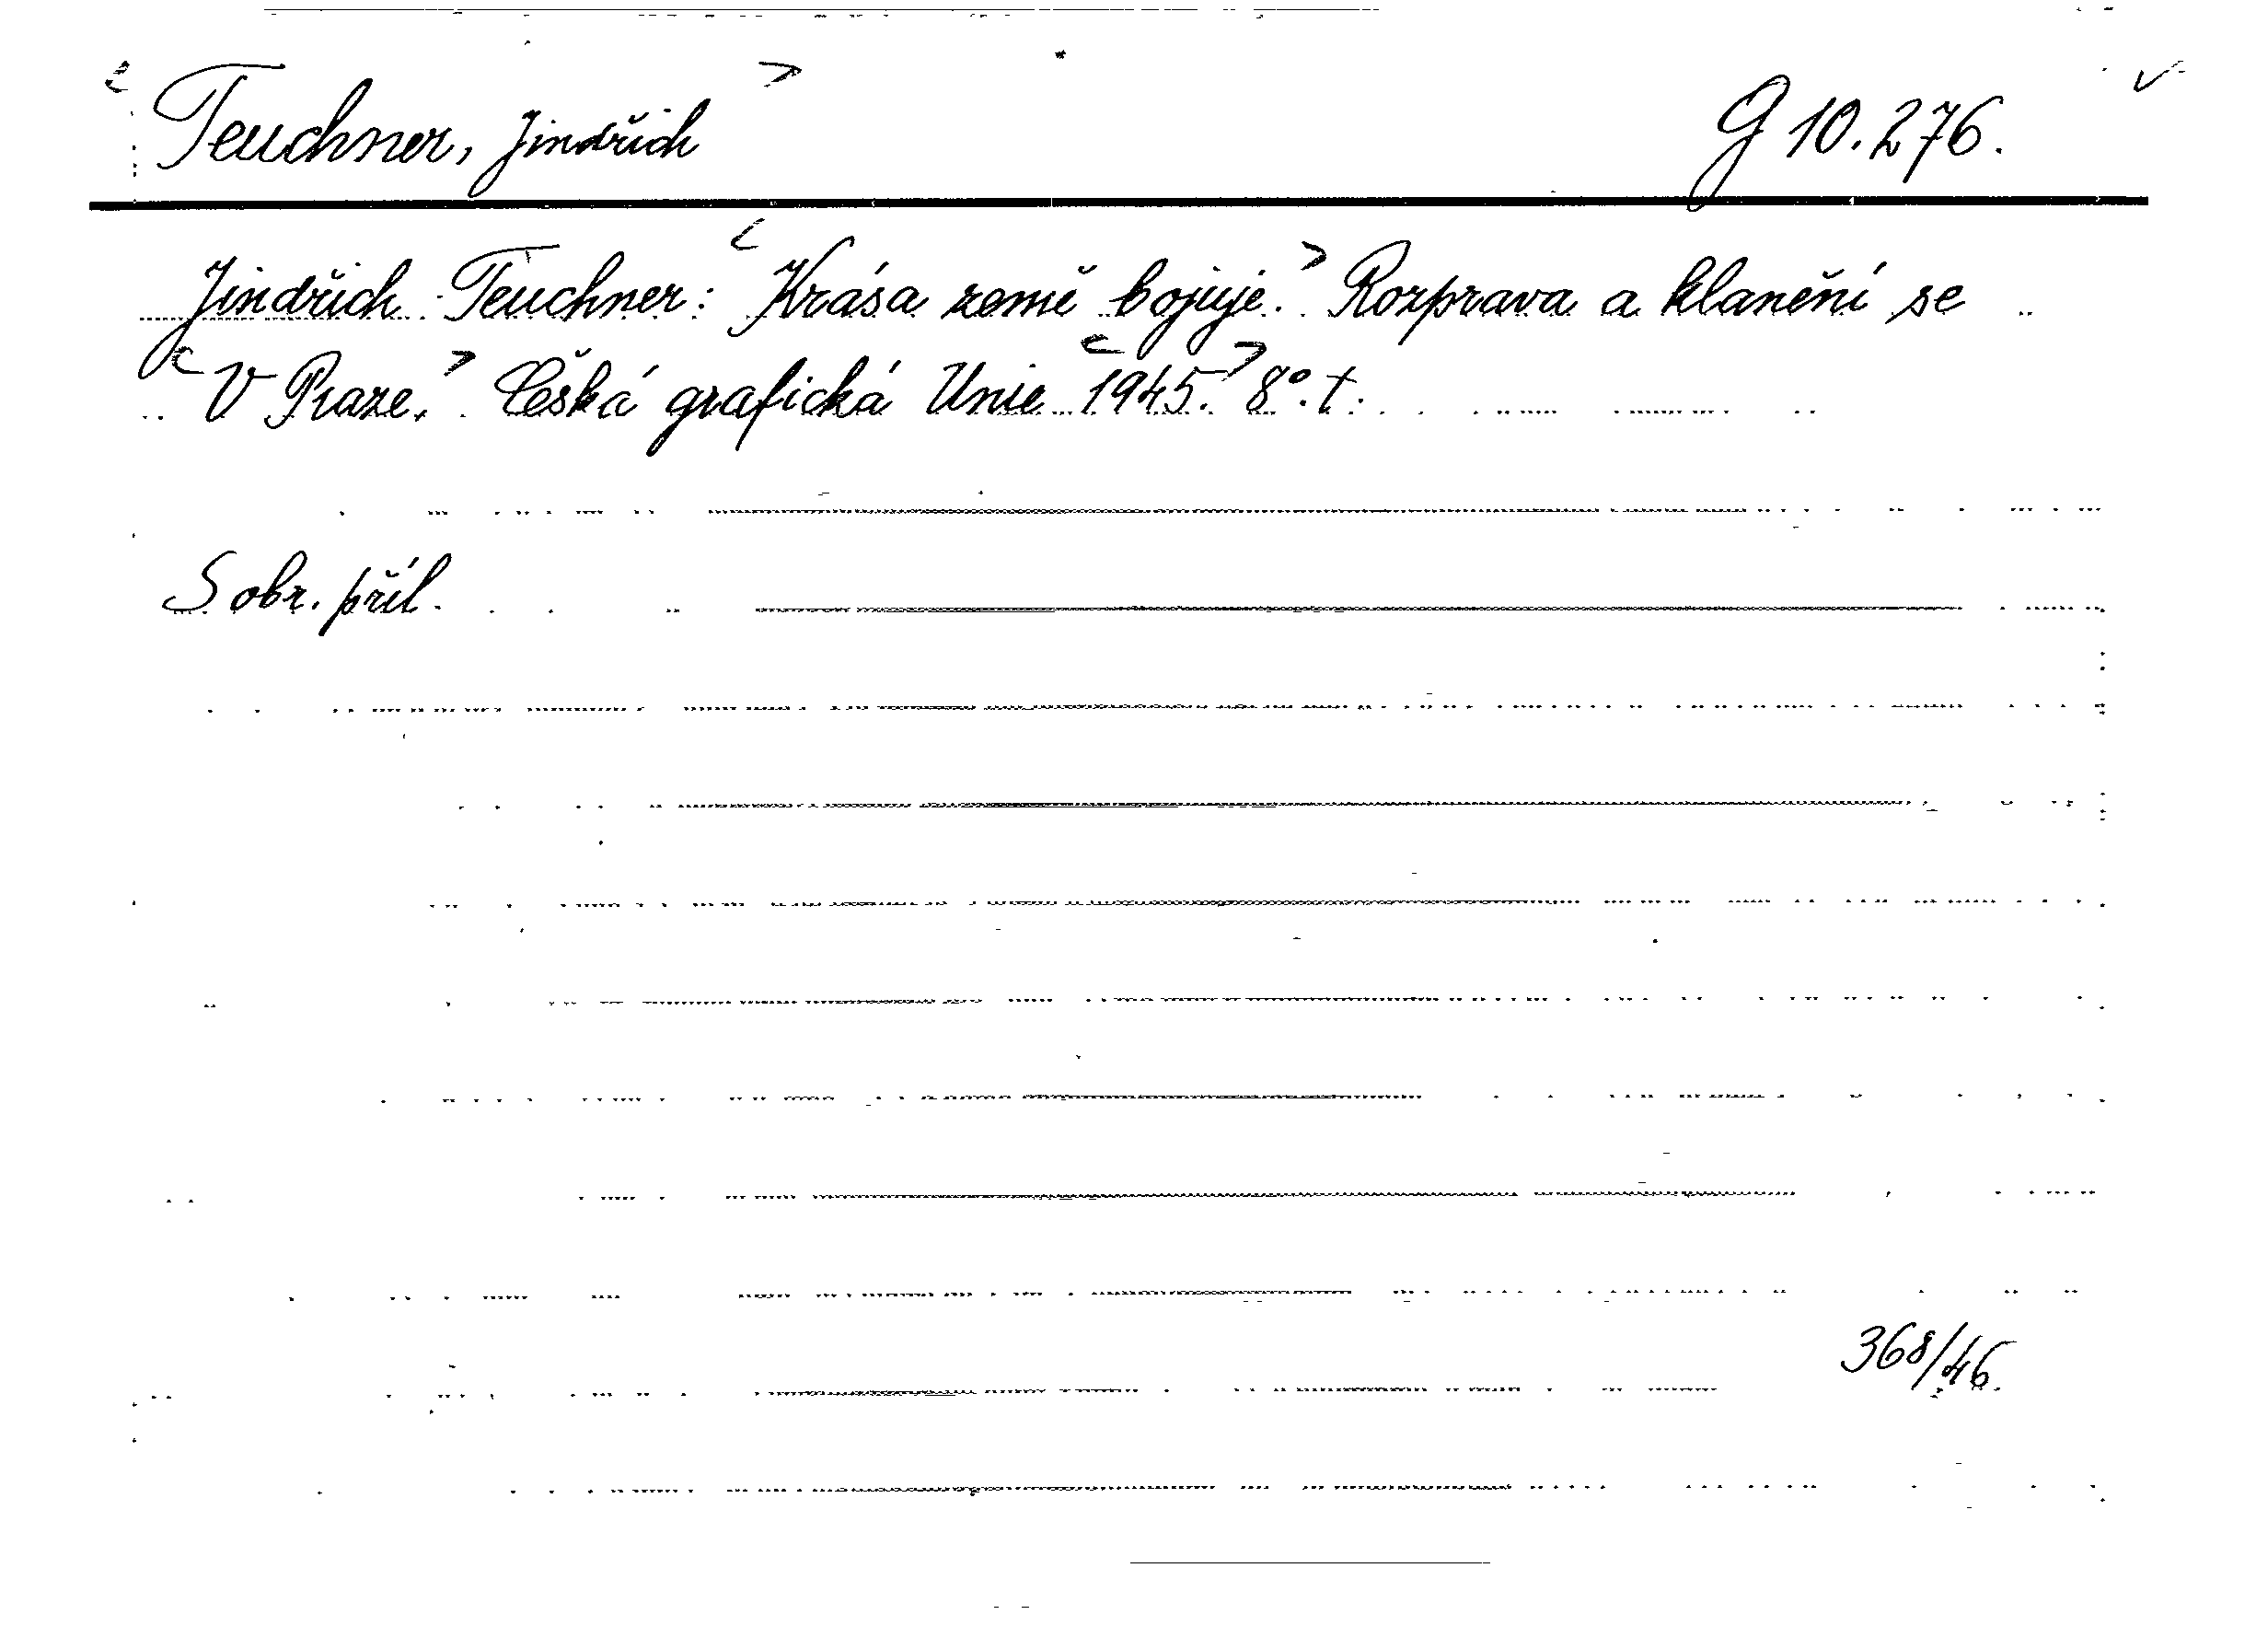 Teuchner, Jindřich G 10.276.
Jindřich Teuchner: Krása země bojuje. Rozprava a klanění se
V Praze. Česká grafická Unie 1945. 8°. t.
S obr. příl.
368/46.